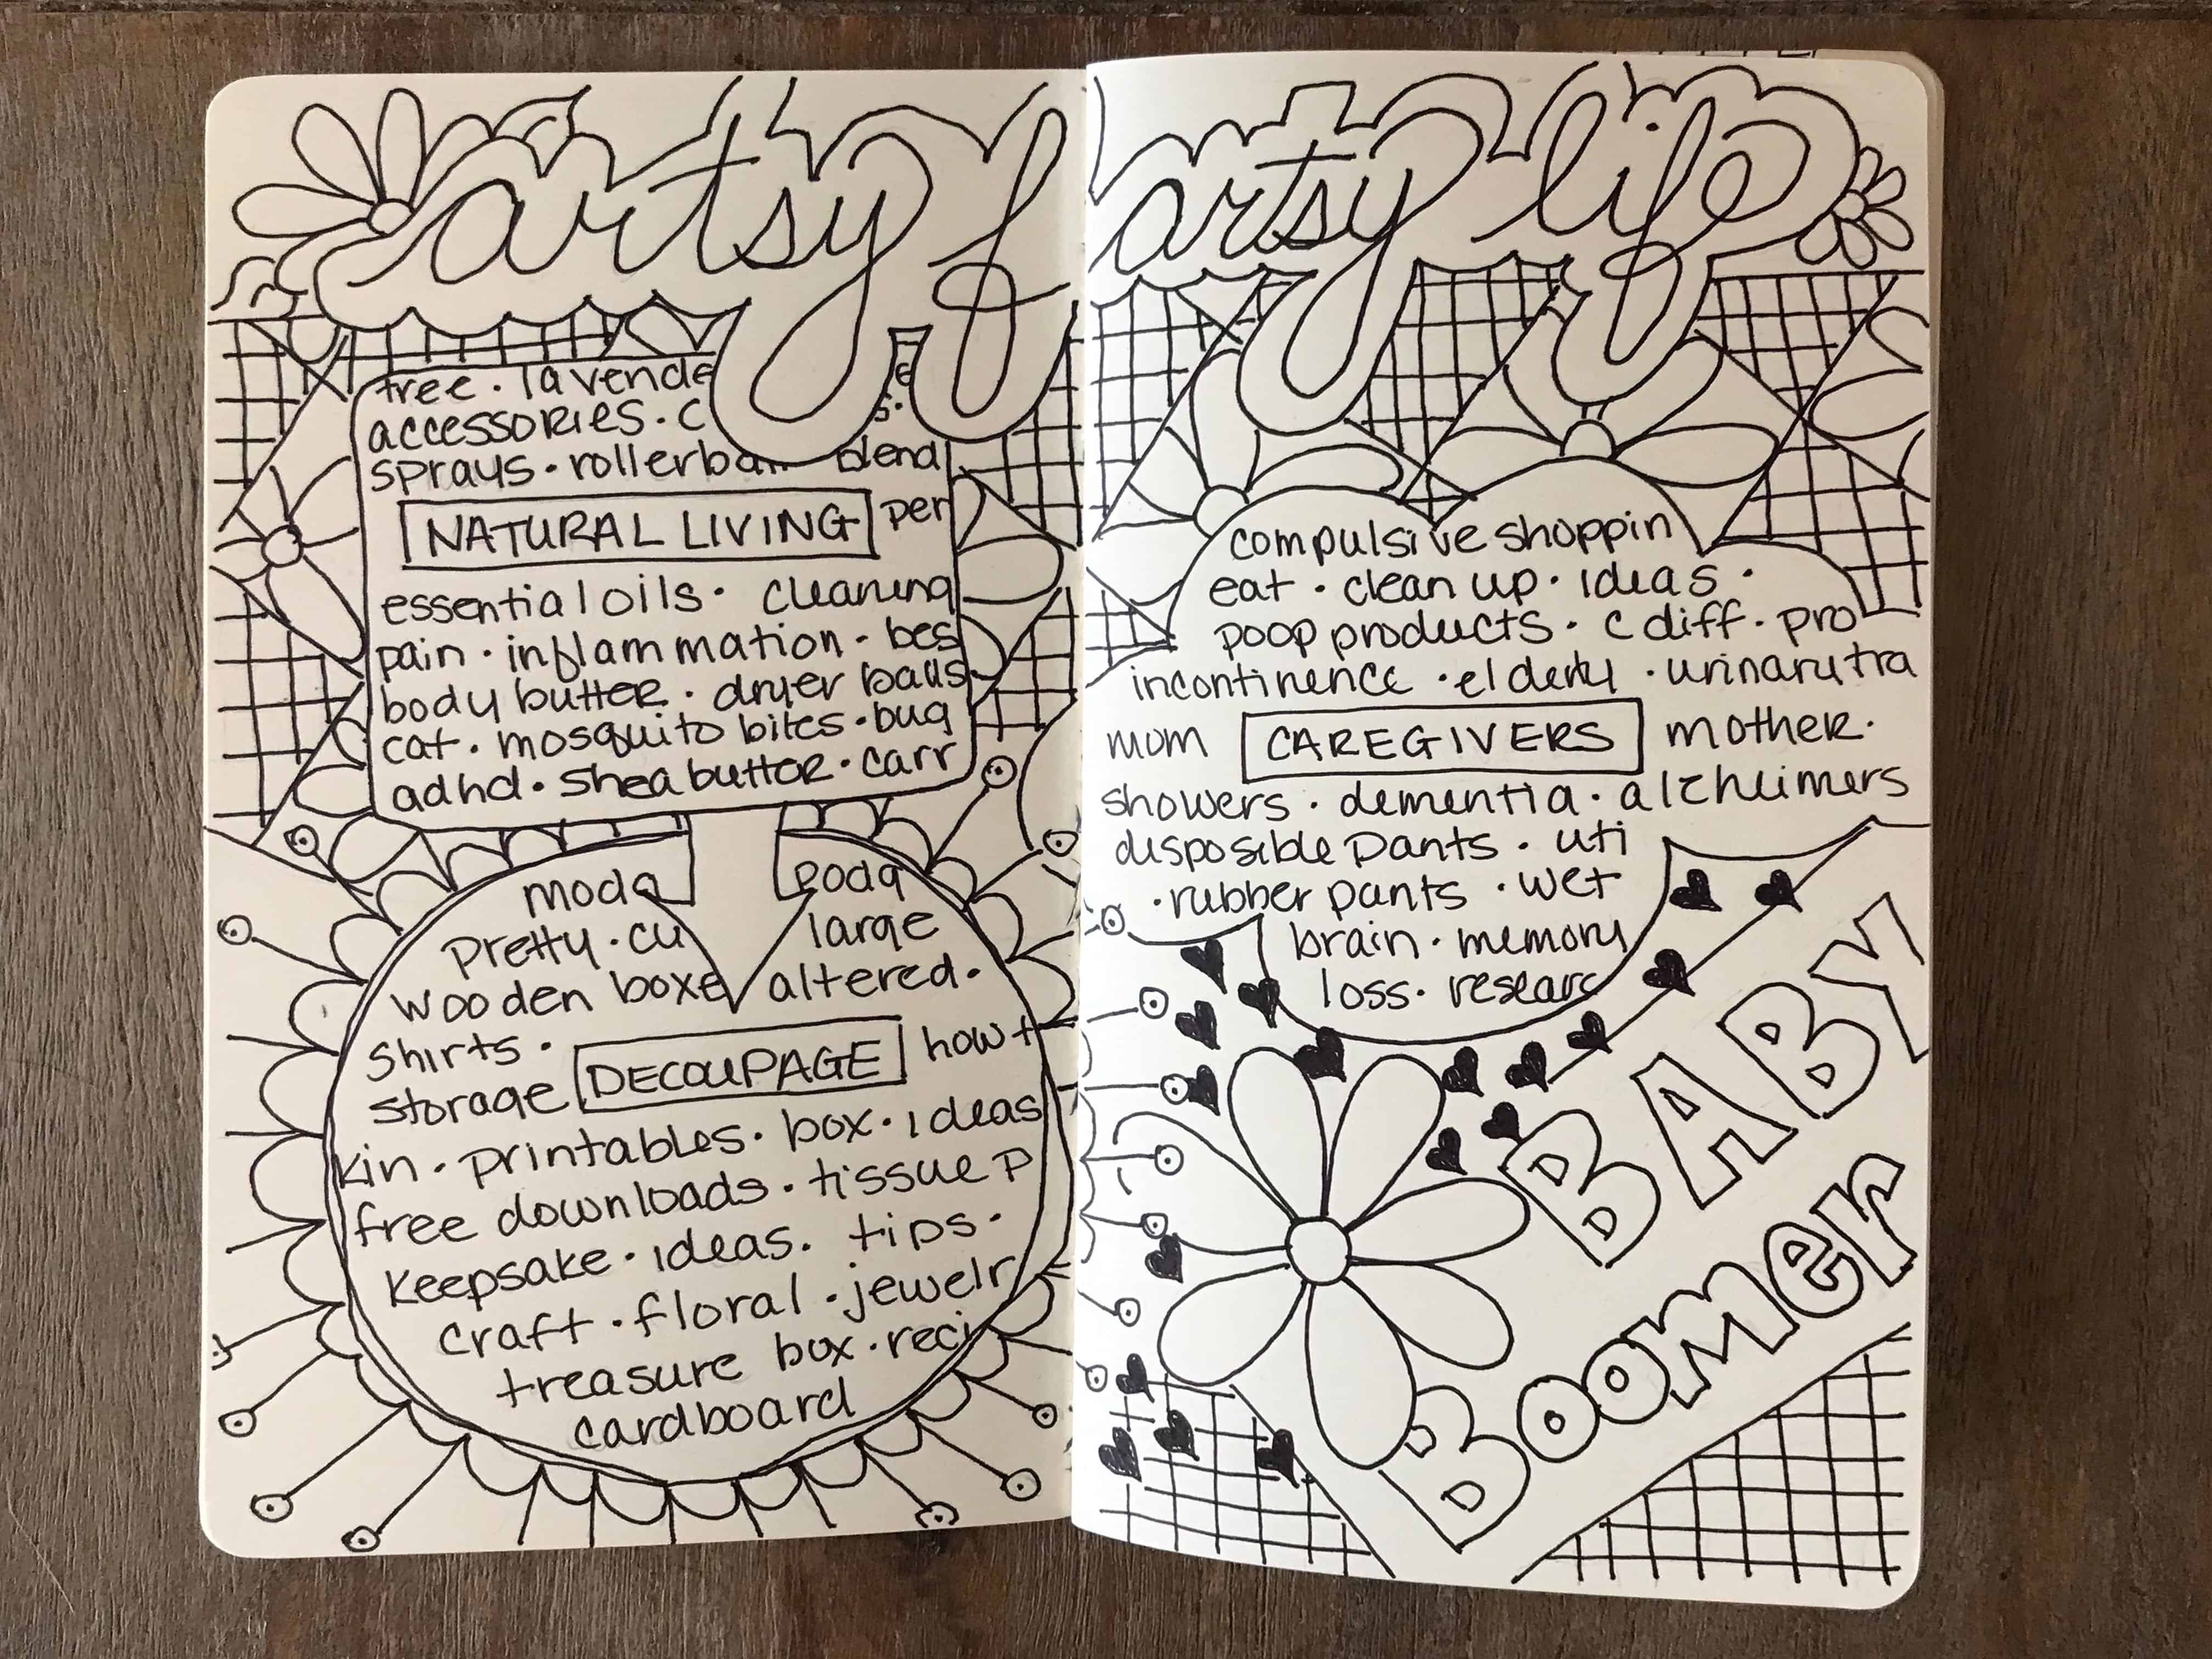 artsy f
free · lavende
accessories · c s.
sprays · rollerba blend
NATURAL LIVING per
essential oils · cleaning
pain · inflammation · bes
body butter · dryer balls
cat · mosquito bites · bug
adhd · shea butter · carr
modg podg
pretty · cu large
wooden boxe altered ·
shirts ·
storage DECOUPAGE how t
kin · printables · box · ideas
free downloads · tissue p
keepsake · ideas. tips ·
craft · floral · jewelr
treasure box · reci
cardboard
artsy life
compulsive shoppin
eat · clean up · ideas ·
poop products · c diff · pro
incontinence · elderly · urinary tra
mom CAREGIVERS mother ·
showers · dementia · alzheimers
disposible pants · uti
· rubber pants · wet
brain · memory
loss · researc
BABY
Boomer